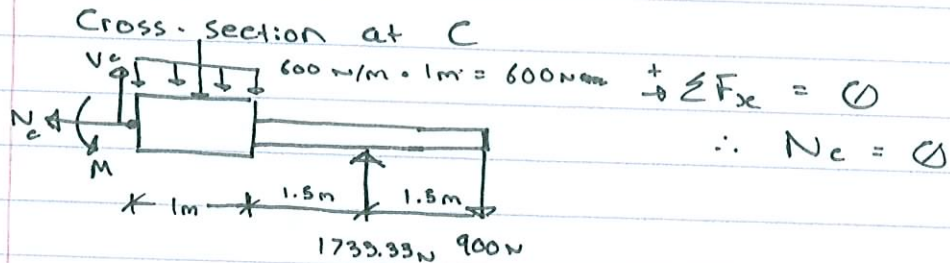 Cross-section at C
Vc 600 N/m · 1m = 600N →+ ΣFx = 0
Nc ∴ Nc = 0
M
1m 1.5m 1.5m
1733.33N 900N